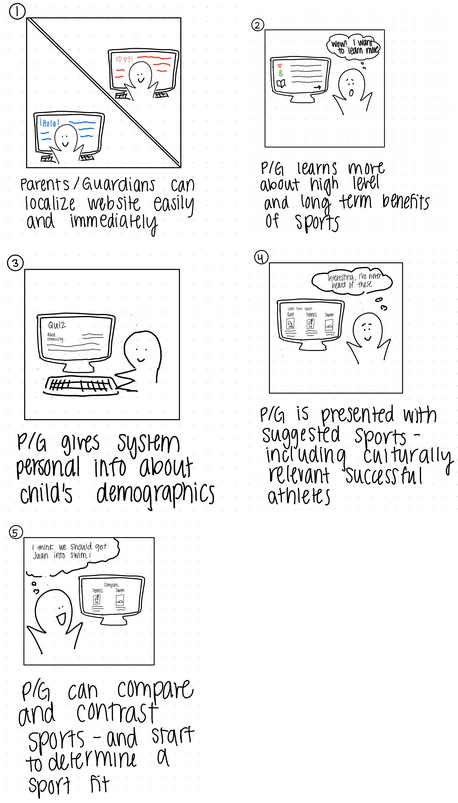 1
¡Hola!
Parents/Guardians can
localize website easily
and immediately
2
Wow! I want
to learn more
P/G learns more
about high level
and long term benefits
of sports
3
Quiz
Race
Ethnicity
P/G gives system
personal info about
child's demographics
4
Interesting, I've never
heard of these
Golf Tennis Swim
P/G is presented with
suggested sports -
including culturally
relevant successful
athletes
5
I think we should get
Juan into swim!
Compare
Tennis Swim
P/G can compare
and contrast
sports - and start
to determine a
sport fit